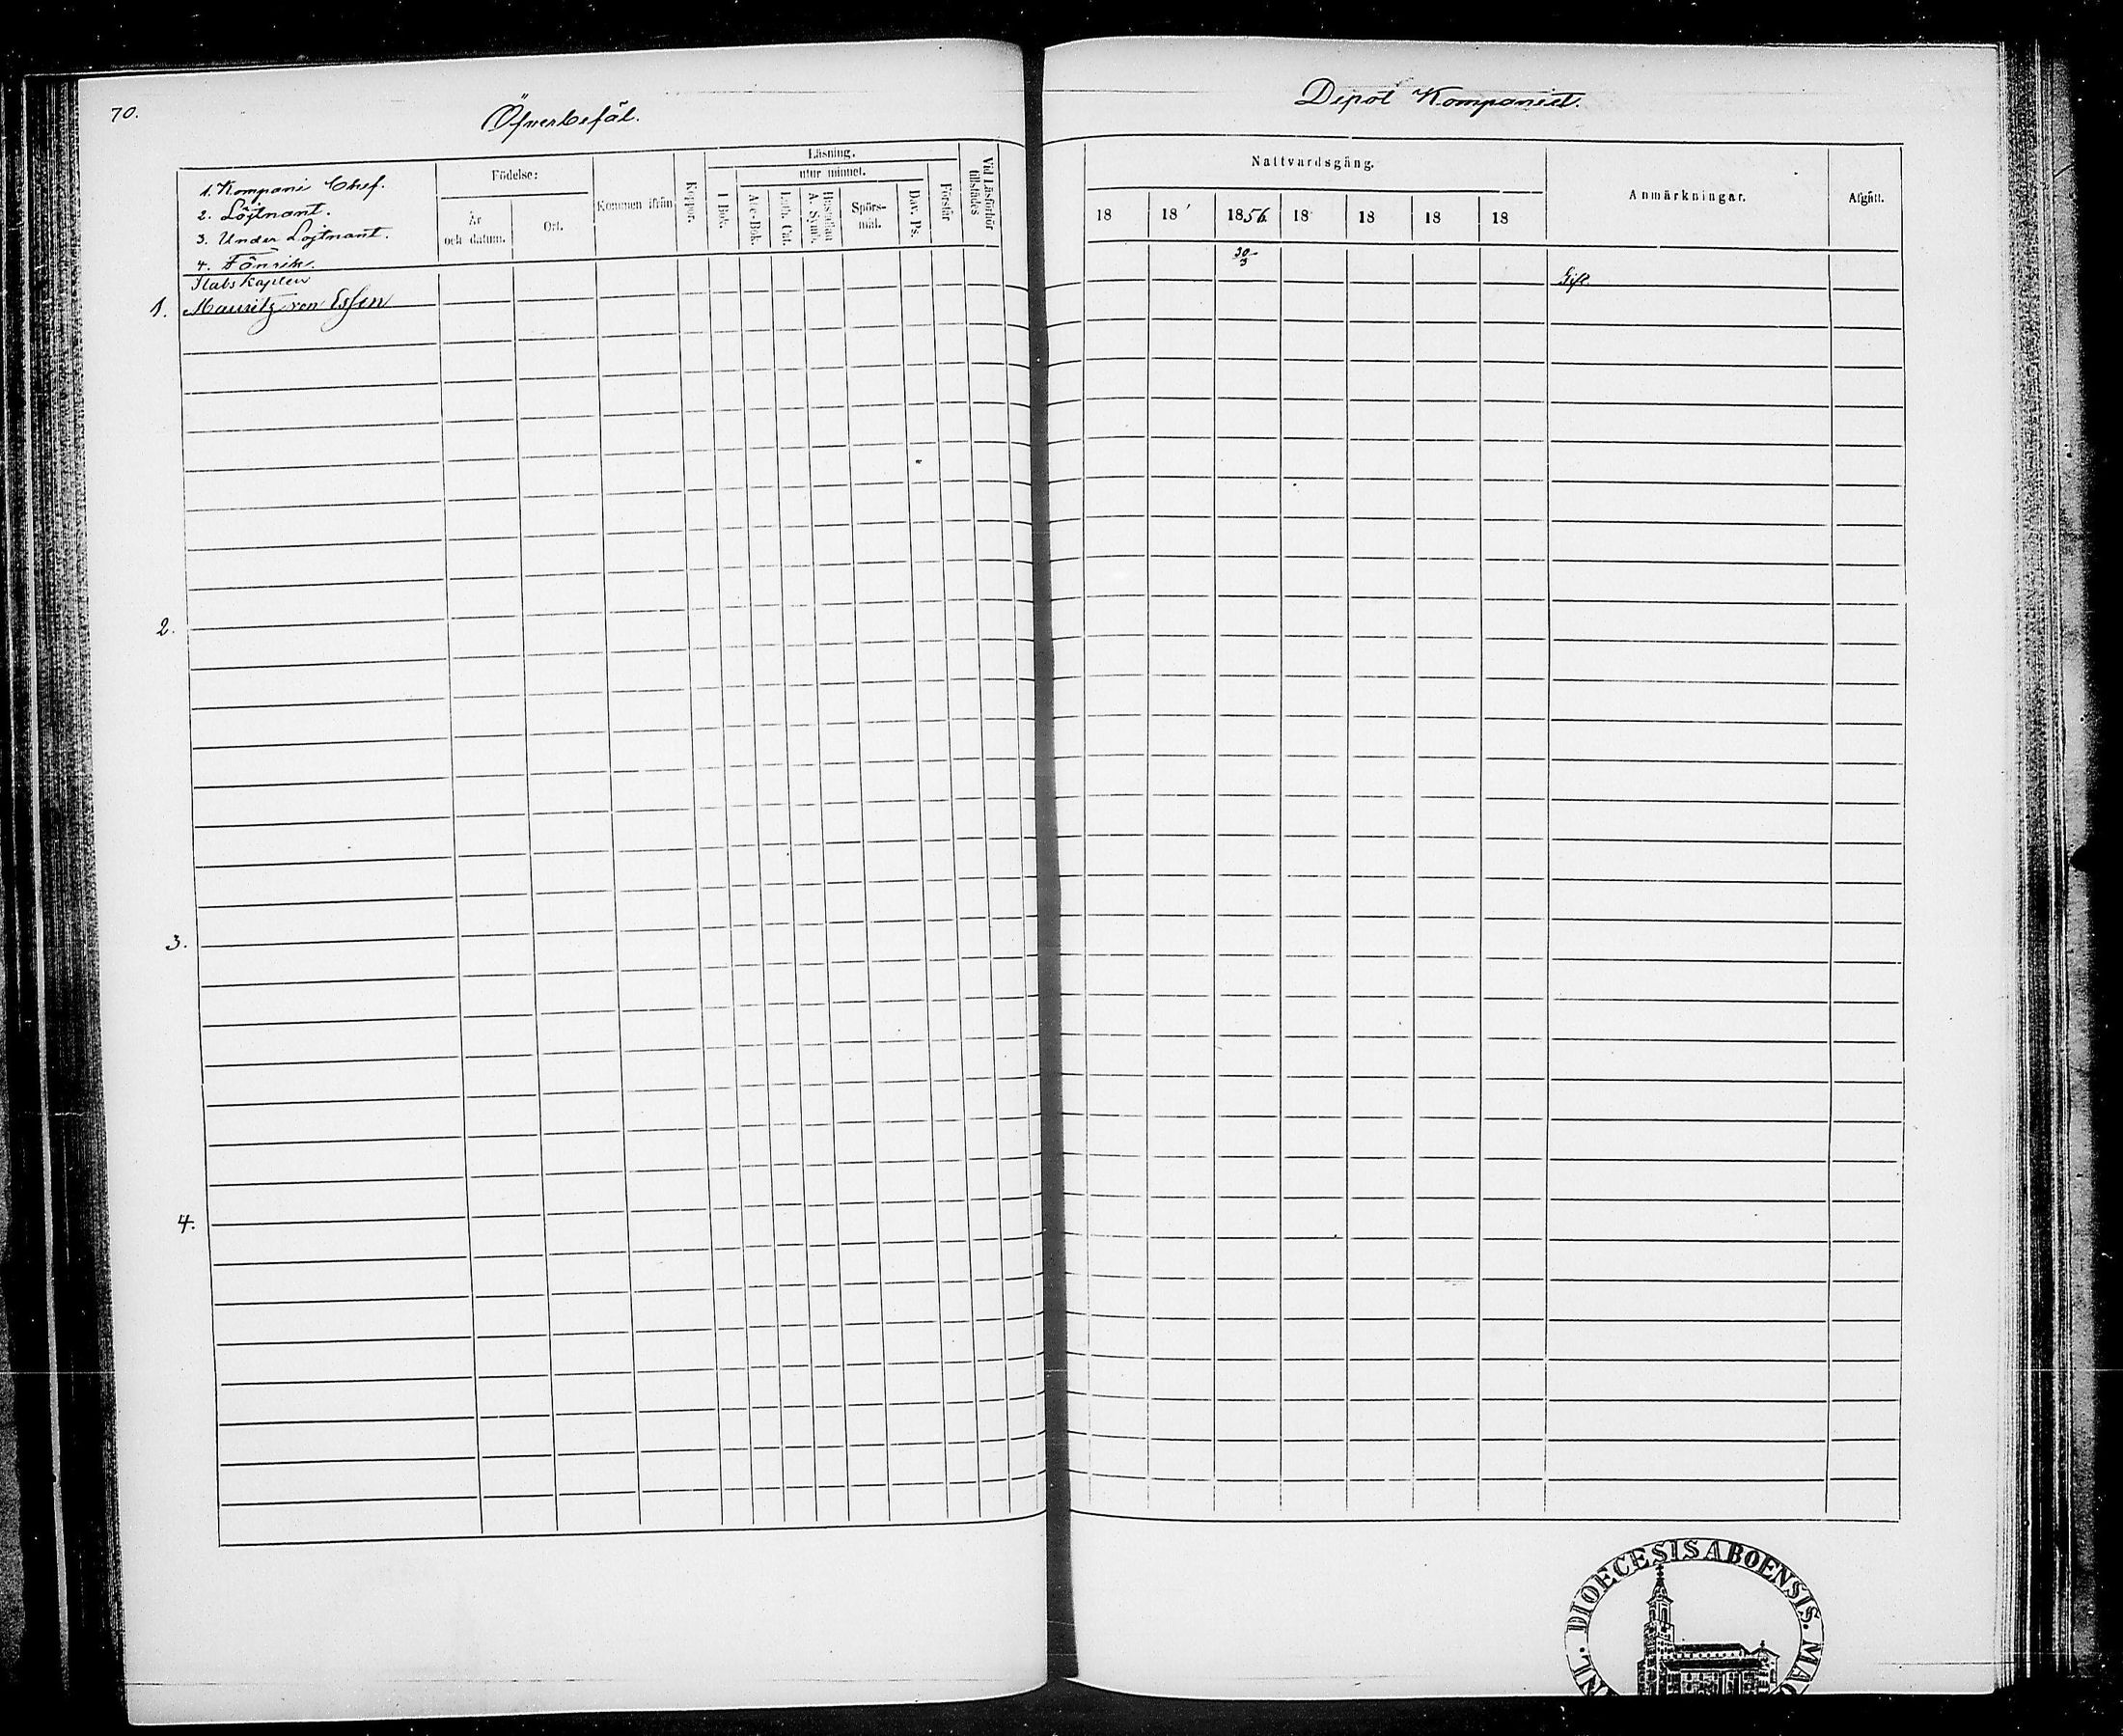 70.
Öfverbefäl.
Depot Kompaniet.
1. Kompani Chef.
2. Löjtnant.
3. Under Löjtnant.
4. Fänrik.
Födelse:
År och datum.
Ort.
Kommen ifrån
Koppor.
Läsning.
utur minnet.
I Bok.
Abc-Bok.
Luth. Cat.
Hustaflan A. Symb.
Spörs-mål.
Dav. Ps.
Förstår
Vid Läsförhör tillstädes
Nattvardsgång.
18 18 1856. 18 18 18 18
Anmärkningar.
Afgått.
Stabs Kapten
30/3
Gift.
1. Mauritz von Essen
2.
3.
4.
DIOECESIS ABOENSIS.